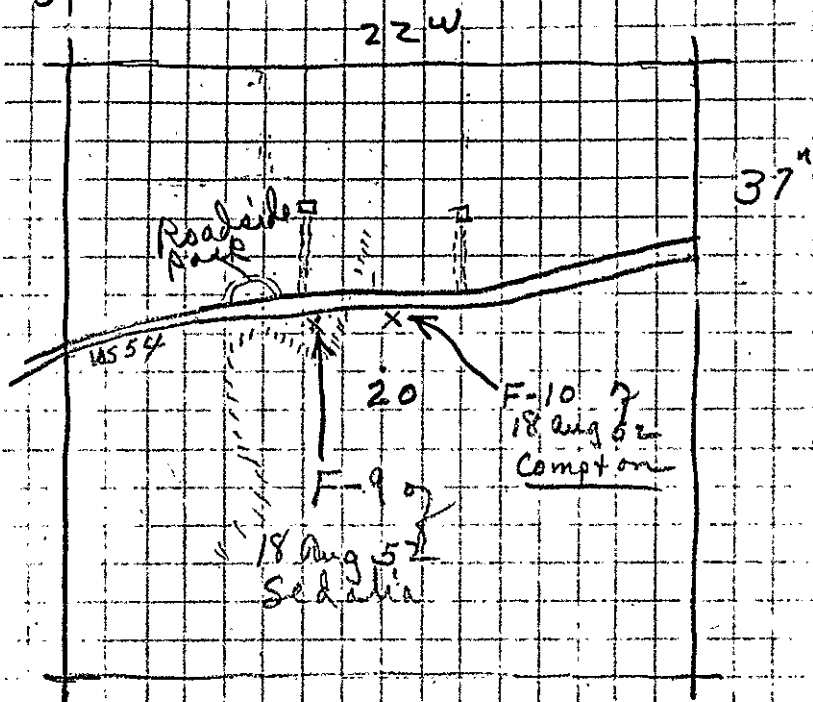 22W
37N
Roadside
Park
US 54
20
F-10
18 Aug 52
Compton
F-9
18 Aug 52
Sedalia